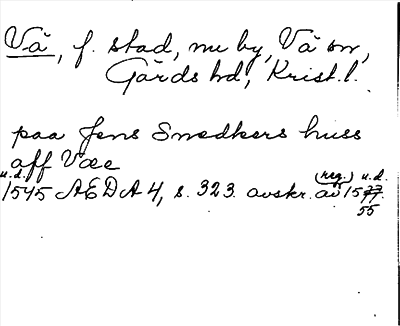 Vä, f. stad, nu by, Vä sn,
Gärds hd, Krist. l.
paa Jens Snedkers huss
aff Væe
u.d. (reg.) u.d.
1545 AEDA 4, s. 323. avskr. av 1577.
55